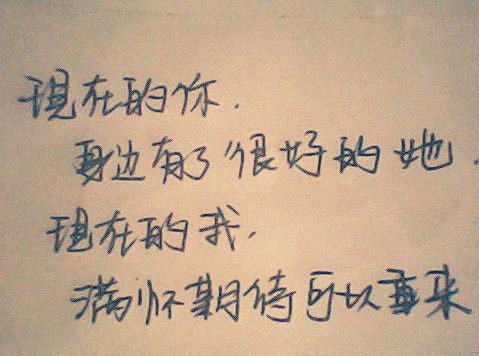 现在的你.
身边有了很好的她.
现在的我.
满怀期待可以再来